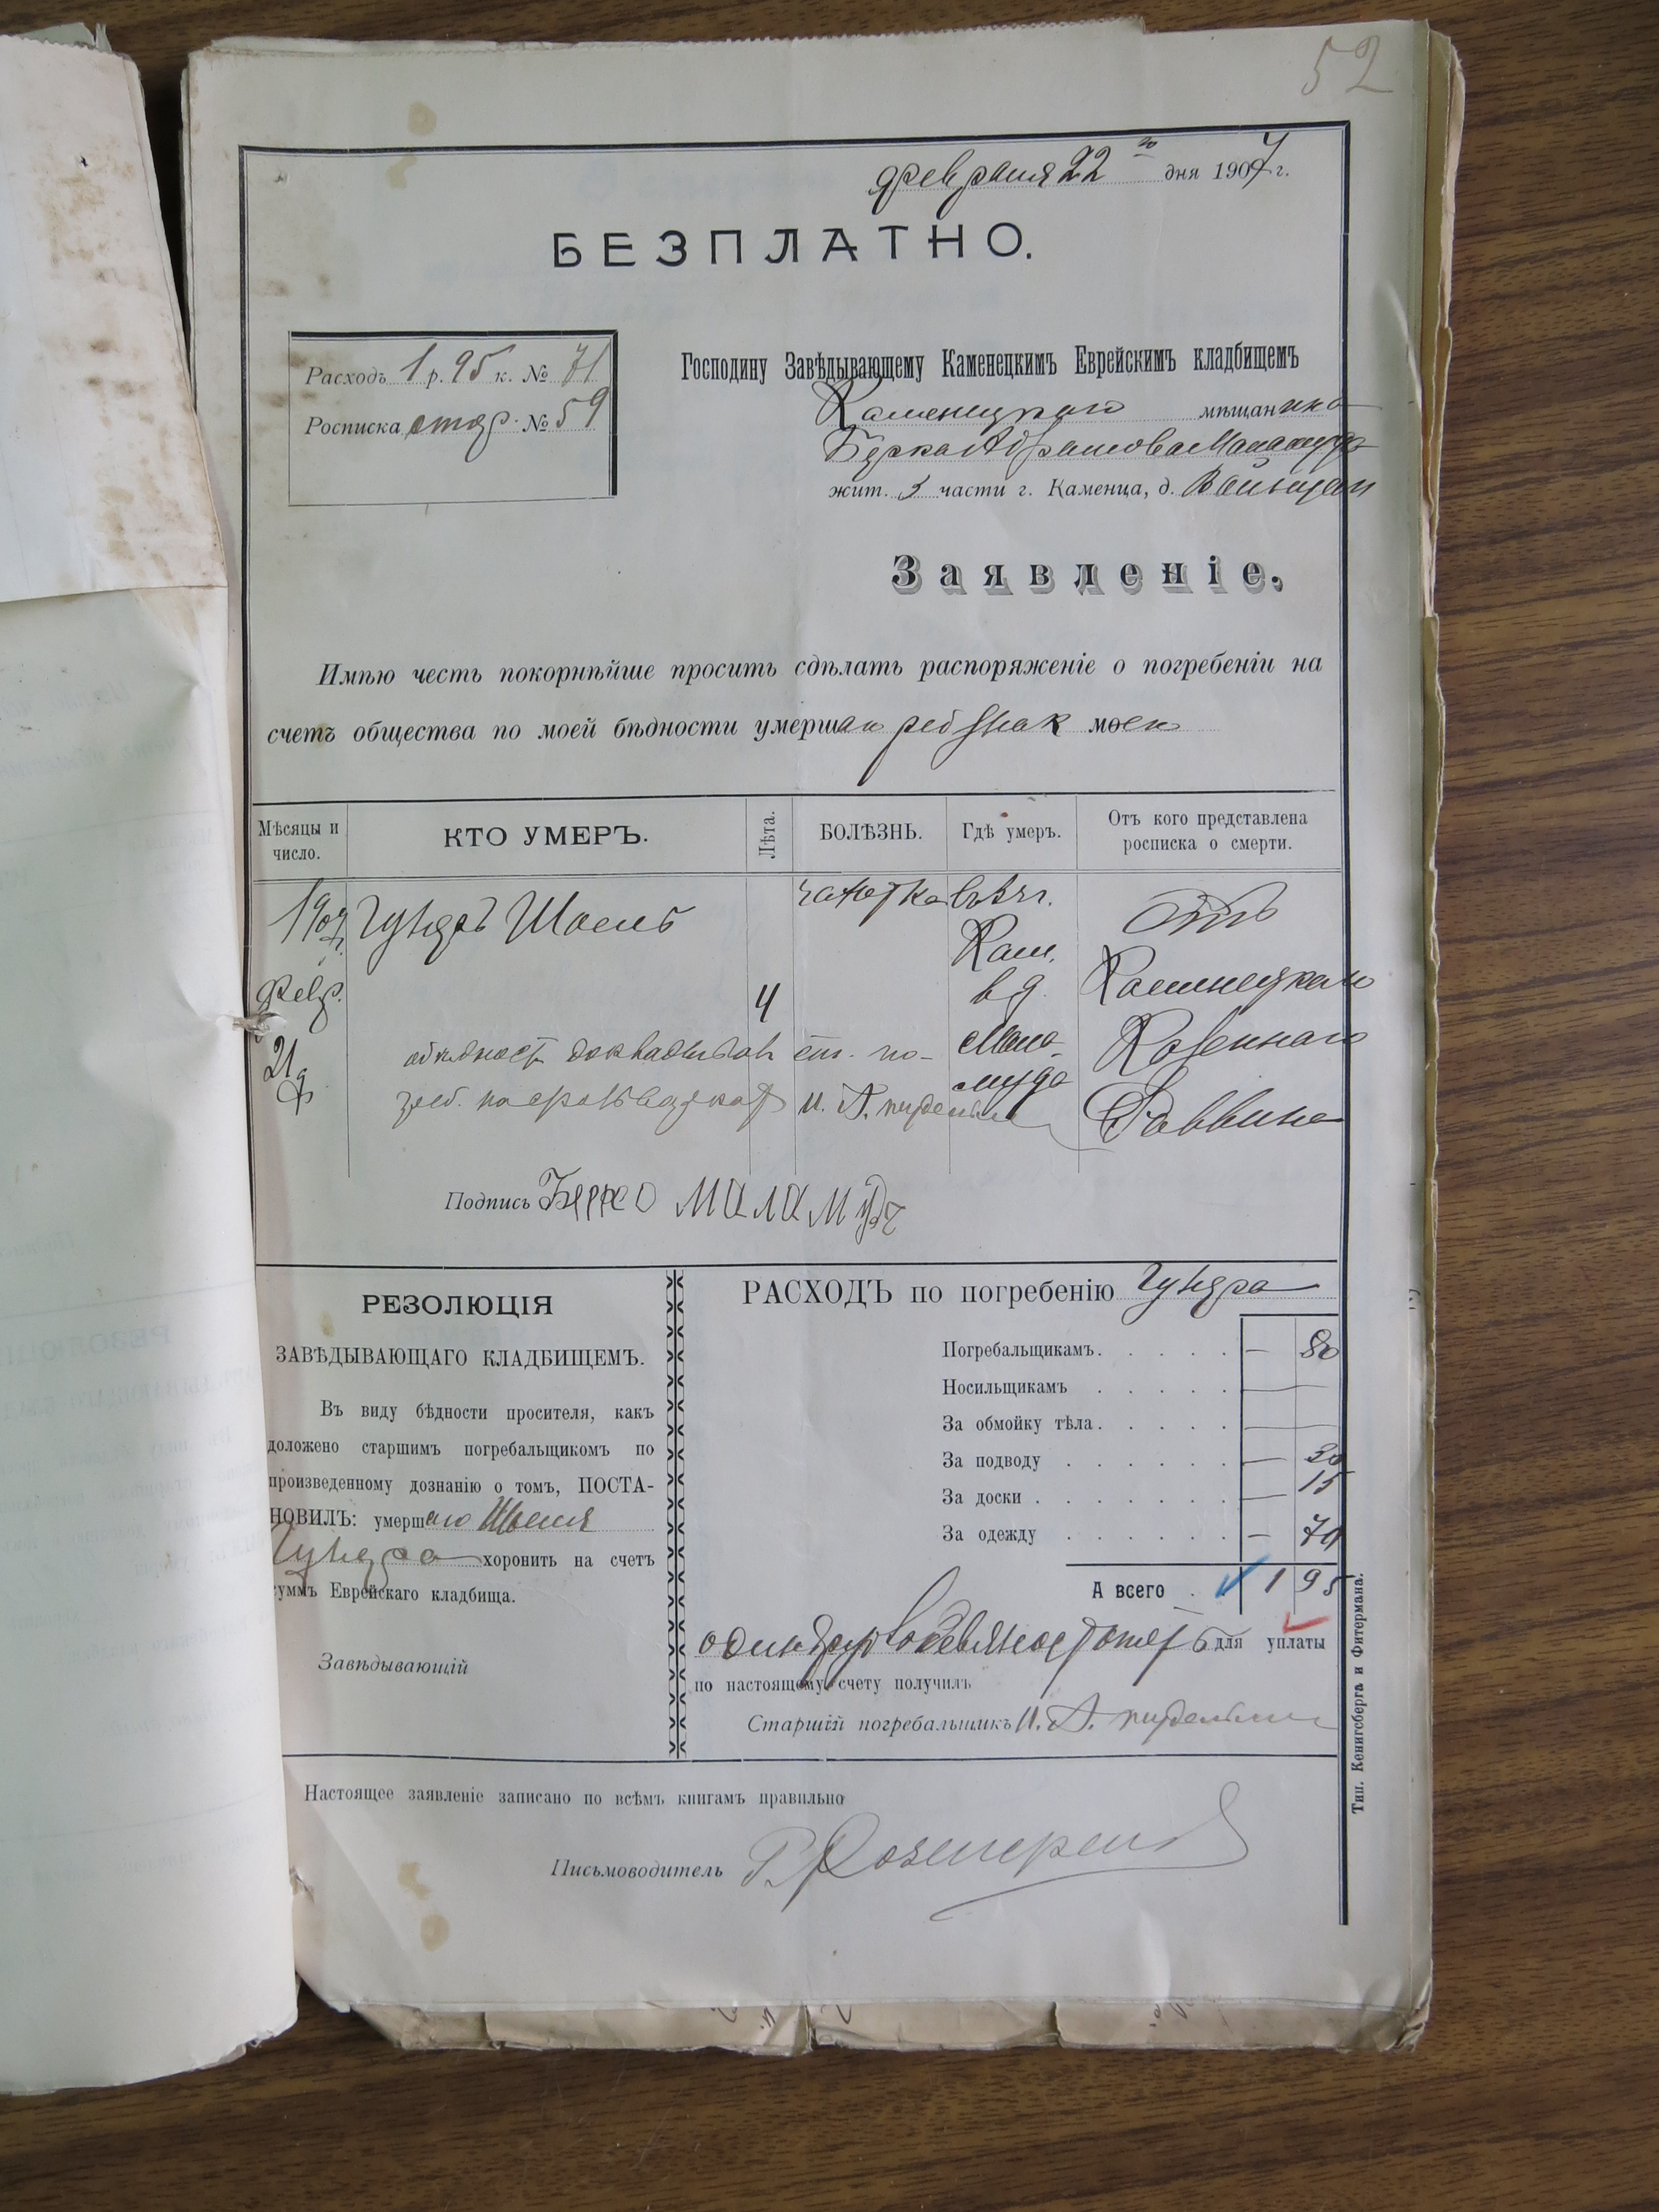 52
февраля 22 го дня 1907 г.
БЕЗПЛАТНО.
Расходъ 1 р. 95 к. № 71
Росписка стар. № 59
Господину Завѣдывающему Каменецкимъ Еврейскимъ кладбищемъ
Каменецкаго мѣщанина
Берка Абрамова Маламуда
жит. 3 части г. Каменца, д.
Заявленіе.
Имѣю честь покорнѣйше просить сдѣлать распоряженіе о погребеніи на
счетъ общества по моей бѣдности умерш мо
Мѣсяцы и число.
КТО УМЕРЪ.
Лѣта.
БОЛѢЗНЬ.
Гдѣ умеръ.
Отъ кого представлена росписка о смерти.
1907 г.
Февр.
21 д
Гундръ Шоель
4
чахотка
въ г.
Кам.
в д.
Мала-
муда
Отъ
Каменецкаго
Казеннаго
Раввина
о бѣдности докладывалъ ст. по-
греб. И. А.
Подпись Берко Маламудъ
РЕЗОЛЮЦІЯ
ЗАВѢДЫВАЮЩАГО КЛАДБИЩЕМЪ.
Въ виду бѣдности просителя, какъ
доложено старшимъ погребальщикомъ по
произведенному дознанію о томъ, ПОСТА-
НОВИЛЪ: умершаго Шоеля
Гундра хоронить на счетъ
суммъ Еврейскаго кладбища.
Завѣдывающій
РАСХОДЪ по погребенію Гундра
Погребальщикамъ. — 80
Носильщикамъ —
За обмойку тѣла. —
За подводу — 30
За доски — 15
За одежду — 70
А всего 1 95
один руб девяносто пять для уплаты
по настоящему счету получилъ
Старшій погребальщикъ И. А.
Настоящее заявленіе записано по всѣмъ книгамъ правильно
Письмоводитель
Тип. Кенигсберга и Фитермана.